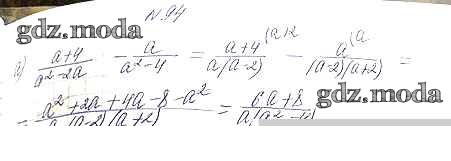 N.94
gdz.moda
а) (a+4)/(a²-2a) - a/(a²-4) = (a+4)/(a(a-2)) (a+2 - a/((a-2)(a+2)) (a =
= (a²+2a+4a-8-a²)/(a(a-2)(a+2)) = (6a+8)/(a(a²-4))
gdz.moda